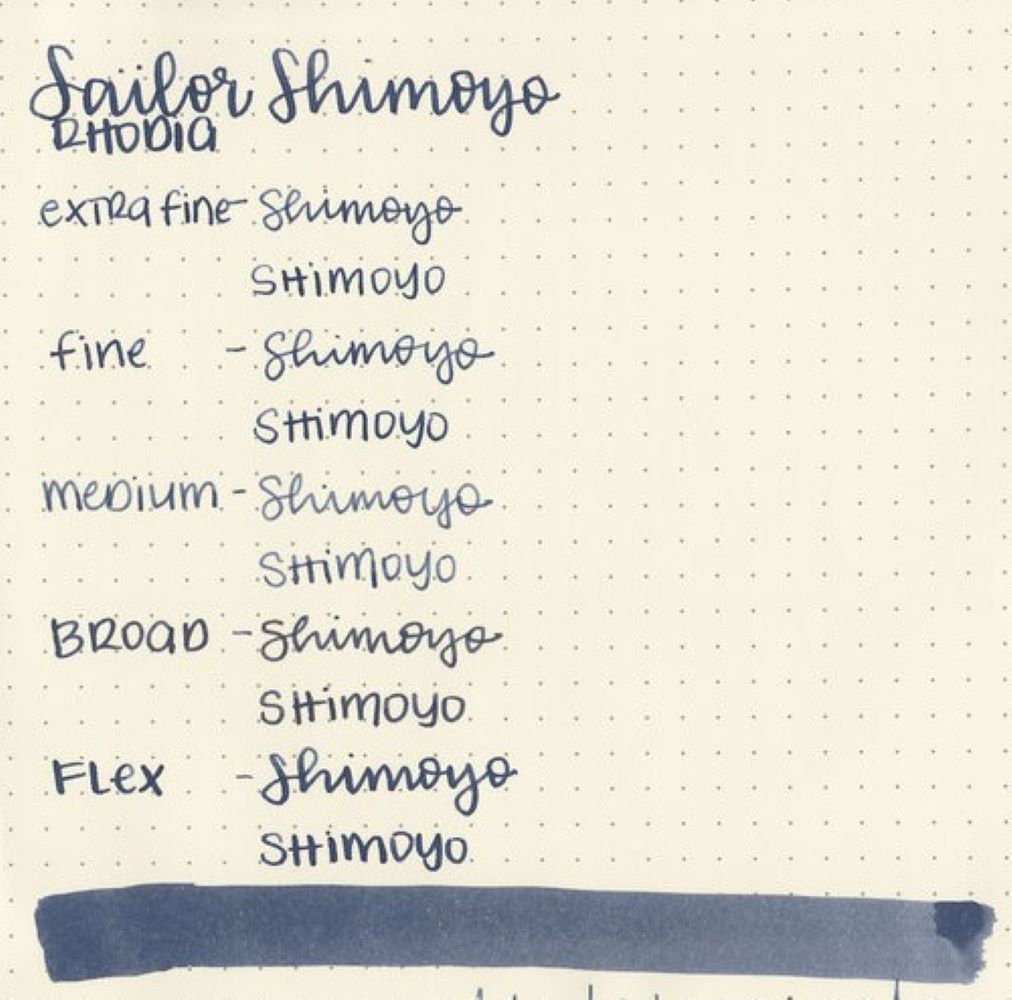 Sailor Shimoyo
RHODIA
extra fine - Shimoyo
SHimoyo
fine - Shimoyo
SHimoyo
meDium - Shimoyo
SHimoyo
BROAD - Shimoyo
SHimoyo
FLex - Shimoyo
SHimoyo